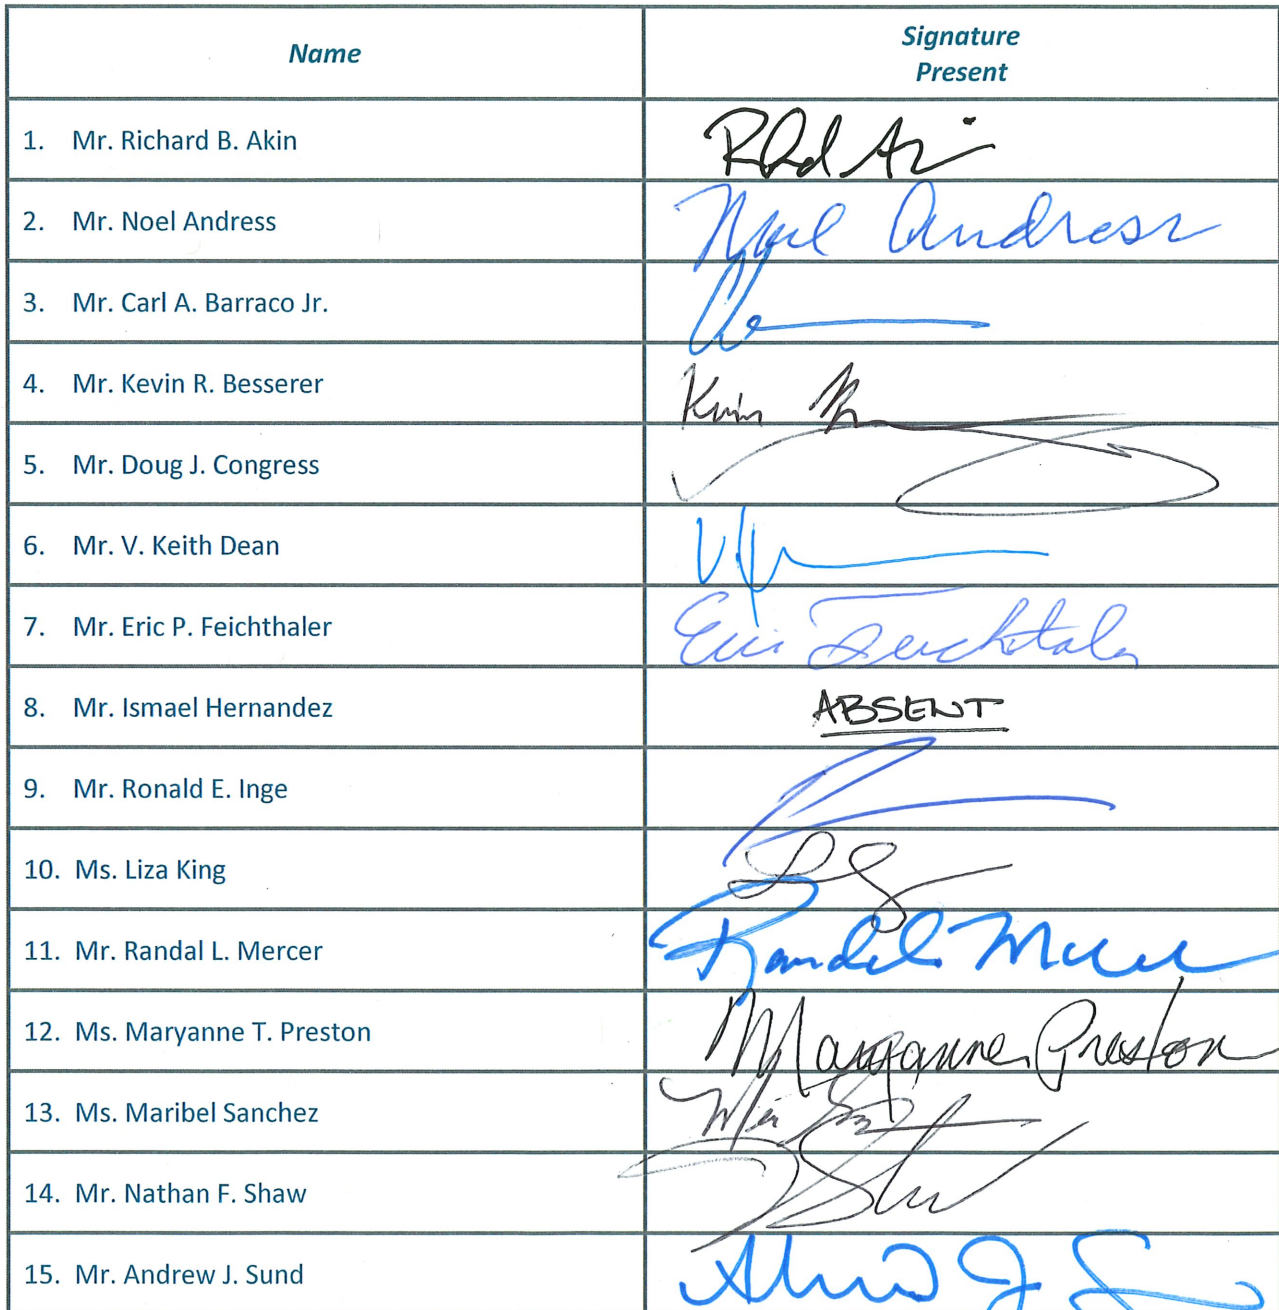 Name
Signature
Present
1. Mr. Richard B. Akin
2. Mr. Noel Andress
Noel Andress
3. Mr. Carl A. Barraco Jr.
4. Mr. Kevin R. Besserer
Kevin
5. Mr. Doug J. Congress
6. Mr. V. Keith Dean
7. Mr. Eric P. Feichthaler
Eric Feichthaler
8. Mr. Ismael Hernandez
ABSENT
9. Mr. Ronald E. Inge
10. Ms. Liza King
11. Mr. Randal L. Mercer
Randal L. Mercer
12. Ms. Maryanne T. Preston
Maryanne Preston
13. Ms. Maribel Sanchez
14. Mr. Nathan F. Shaw
15. Mr. Andrew J. Sund